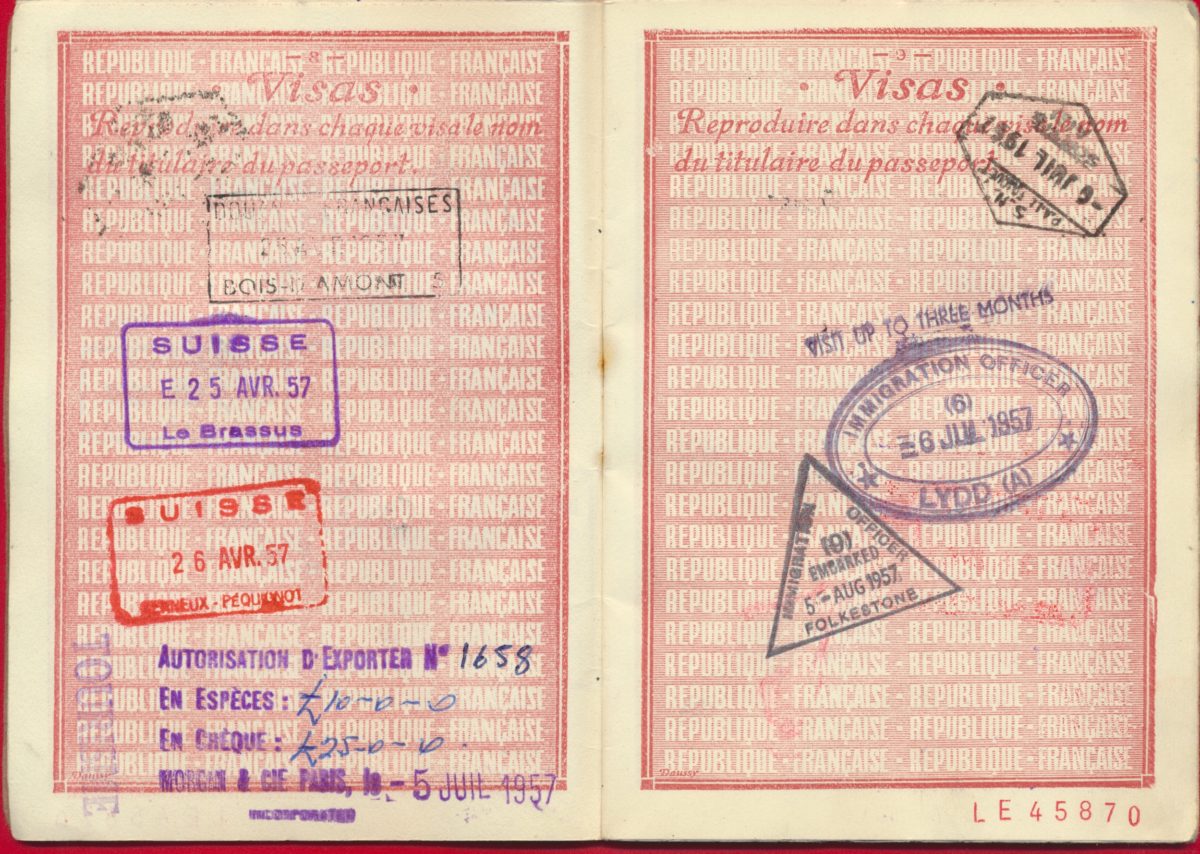 - 8 -
Visas
Reproduire dans chaque visa le nom
du titulaire du passeport.
DOUANES FRANÇAISES
BOIS-D'AMONT 5
SUISSE
E 25 AVR. 57
Le Brassus
SUISSE
26 AVR. 57
AUTORISATION D'EXPORTER N° 1658
EN ESPÈCES : £10-0-0
EN CHÈQUE : £25-0-0
MORGAN & CIE PARIS, le - 5 JUIL 1957
INCORPORATED
Daussy
- 9 -
Visas
Reproduire dans chaque visa le nom
du titulaire du passeport.
-6 JUIL 1957
VISIT UP TO THREE MONTHS
IMMIGRATION OFFICER
(6)
1957
LYDD (A)
IMMIGRATION OFFICER
(9)
EMBARKED
5-AUG 1957
FOLKESTONE
Daussy
LE45870
REPUBLIQUE - FRANÇAISE - REPUBLIQUE - FRANÇAISE